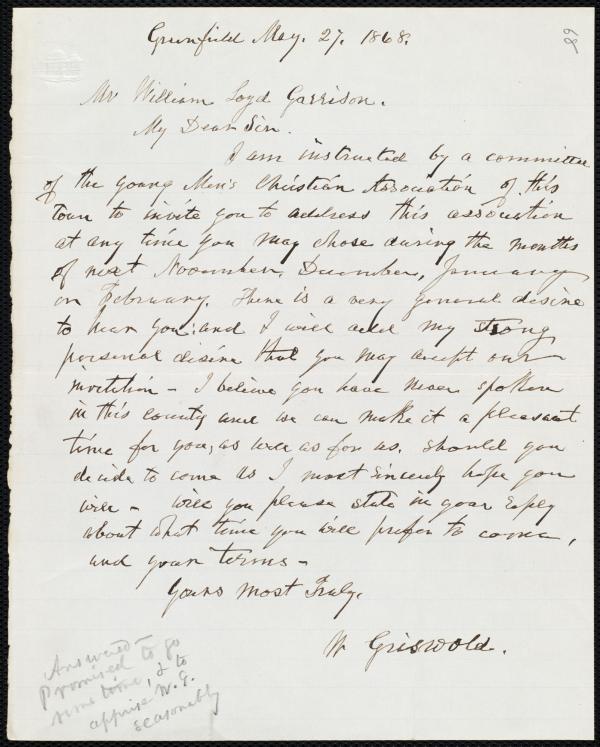 Greenfield May. 27. 1868.
89
Mr William Loyd Garrison.
My Dear Sir.
I am instructed by a committee
of the young Men's Christian Association of this
town to invite you to address this association
at any time you may chose during the months
of next November, December, January
or February. There is a very general desire
to hear you: and I will add my strong
personal desire that you may accept our
invitition - I believe you have never spoken
in this county and we can make it a pleasant
time for you, as well as for us. should you
decide to come as I most sincerely hope you
will - will you please state in your reply
about what time you will prefer to come,
and your terms -
Yours most Truly,
W Griswold.
Answered -
Promised to go
some time, & to
apprise W. G.
seasonably